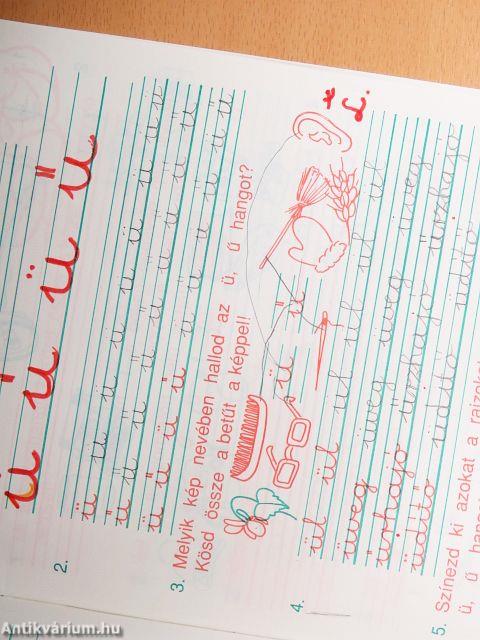 ü ű ü ű
2.
ü ü ü ü ü ü ü ü ü
ű ű ű ű ű ű ű ű ű
ü ű ü ű ü ű ü ű ü ű
3. Melyik kép nevében hallod az ü, ű hangot?
Kösd össze a betűt a képpel!
ü ű
4.
ül ül ül ül ül ül ül
üveg üveg üveg üveg
űrhajó űrhajó űrhajó
üdítő üdítő üdítő
5. Színezd ki azokat a rajzokat
ü, ű hang
Antikvárium.hu